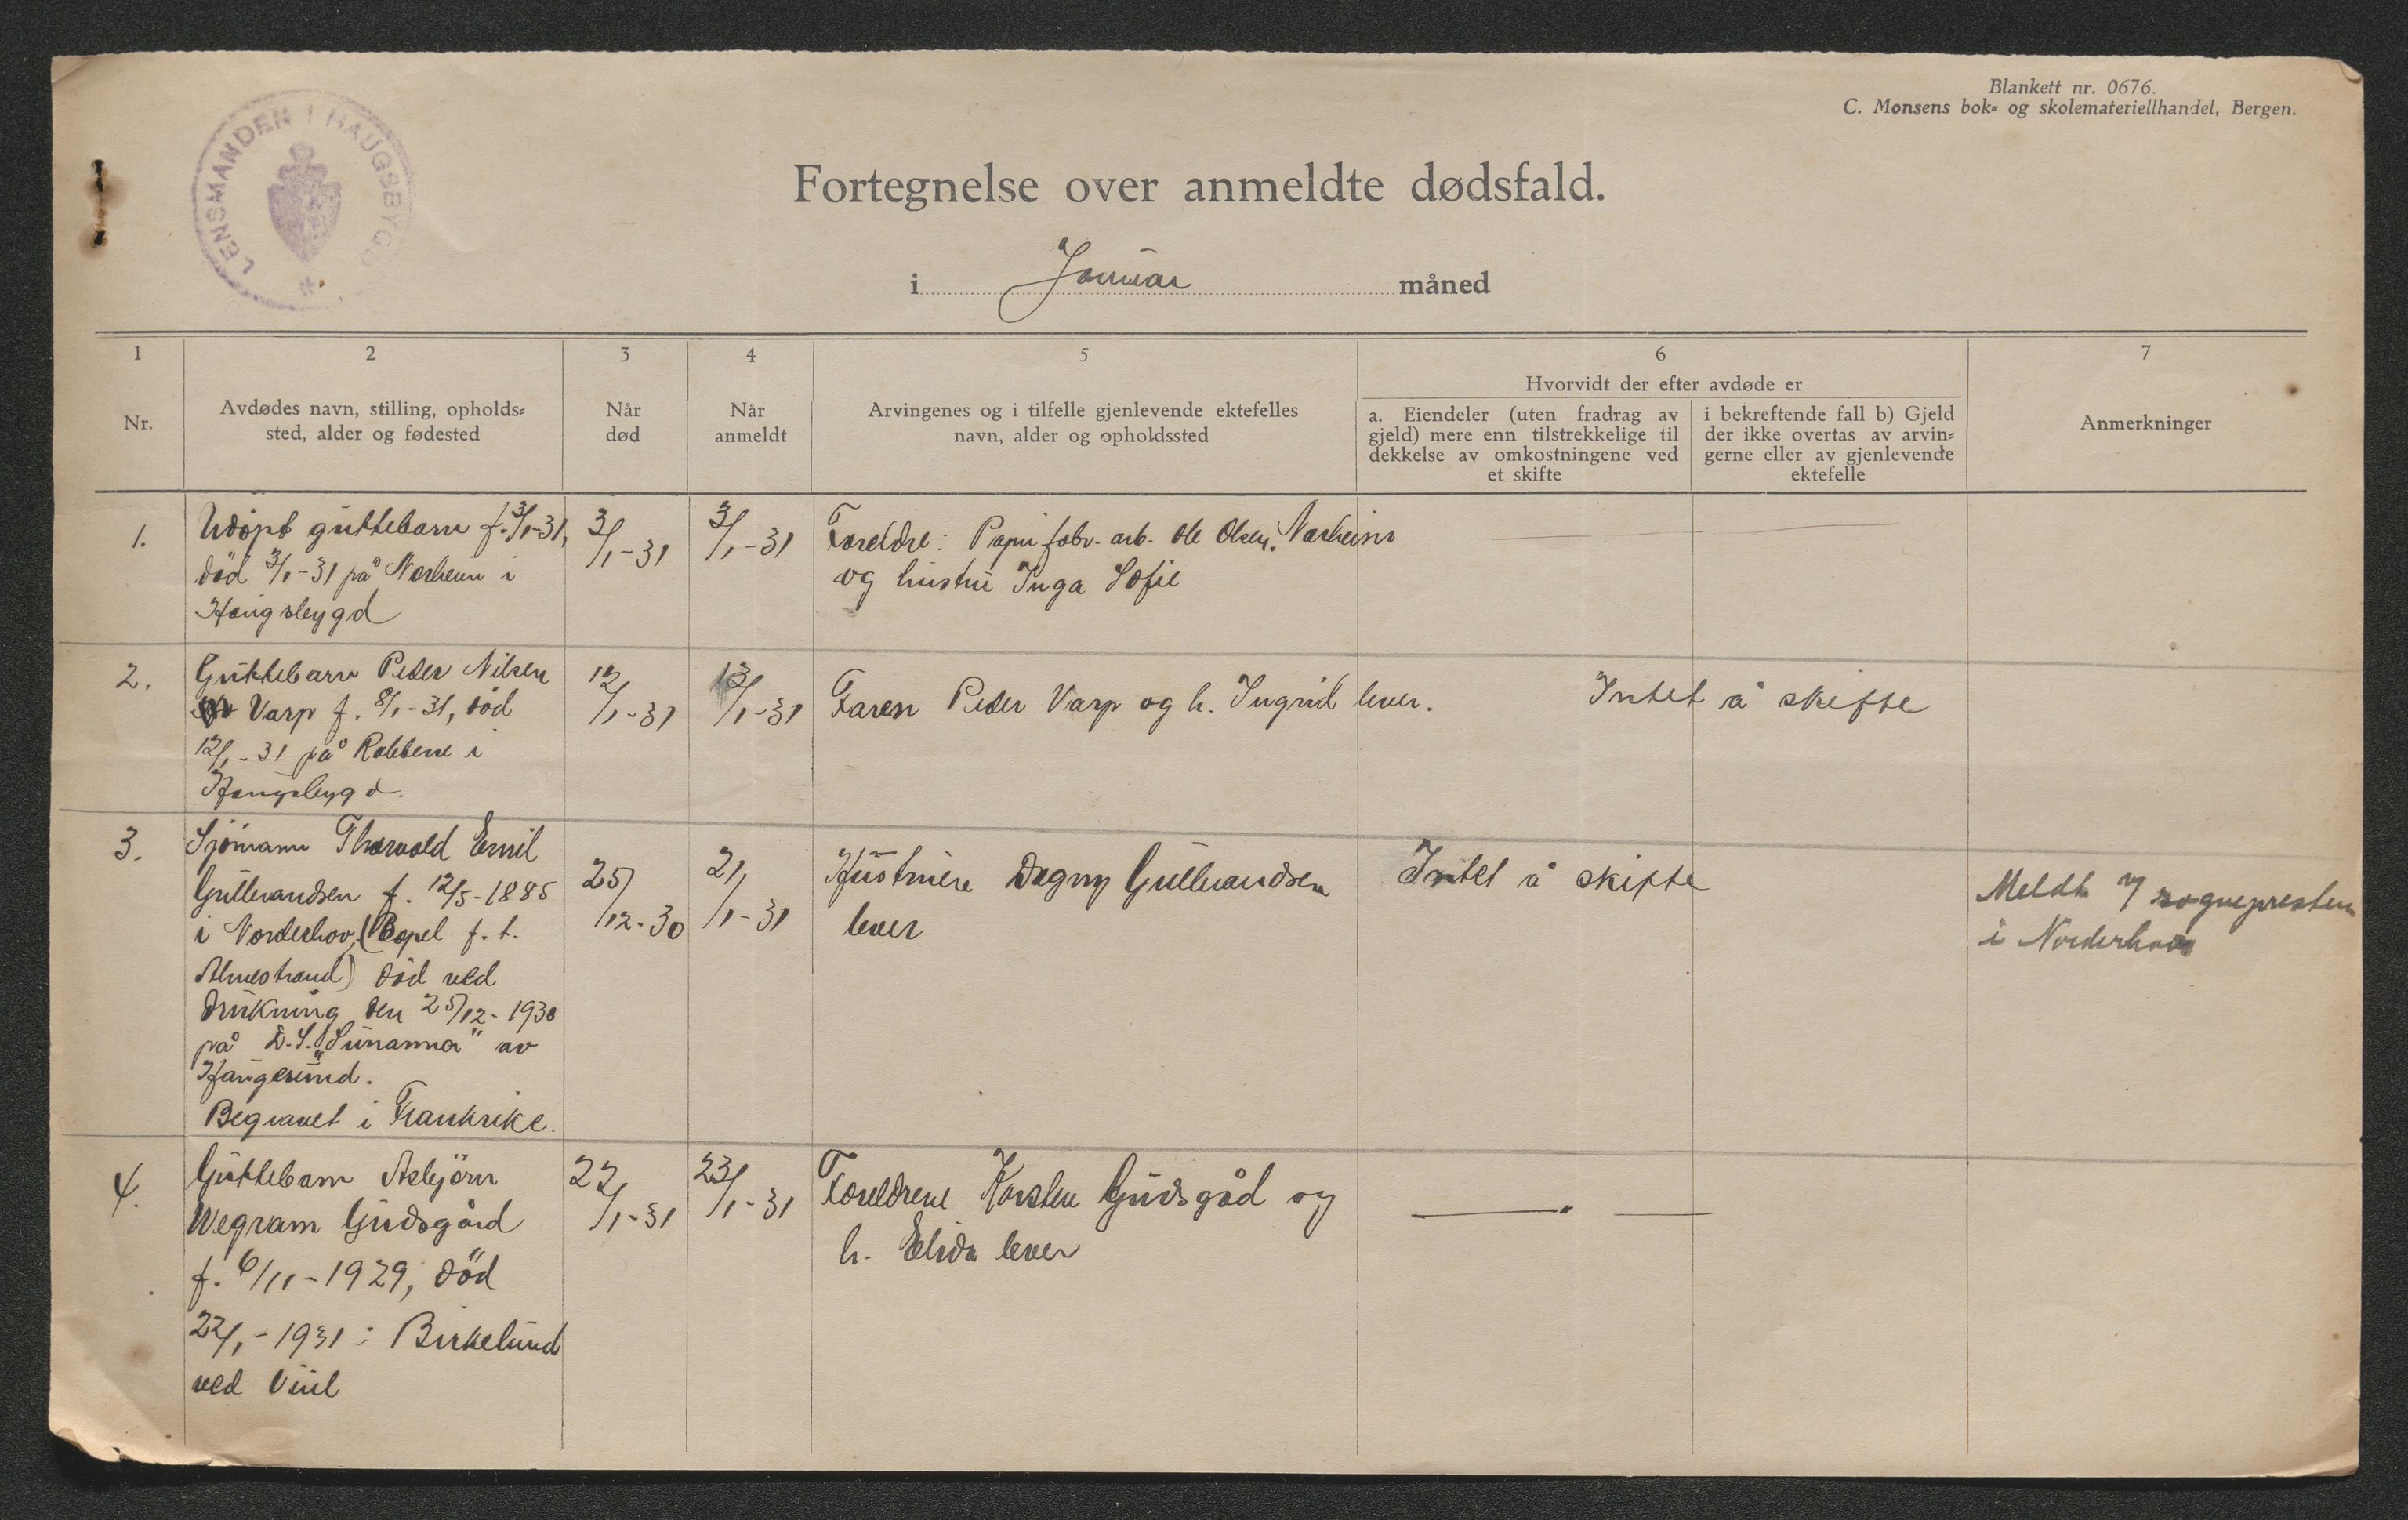 LENSMANDEN I HAUGSBYGD
Blankett nr. 0676.
C. Monsens bok- og skolemateriellhandel, Bergen.
Fortegnelse over anmeldte dødsfald.
i Januar måned
1
2
3
4
5
6
7
Nr.
Avdødes navn, stilling, opholds-
sted, alder og fødested
Når
død
Når
anmeldt
Arvingenes og i tilfelle gjenlevende ektefelles
navn, alder og opholdssted
Hvorvidt der efter avdøde er
a. Eiendeler (uten fradrag av
gjeld) mere enn tilstrekkelige til
dekkelse av omkostningene ved
et skifte
i bekreftende fall b) Gjeld
der ikke overtas av arvin-
gerne eller av gjenlevende
ektefelle
Anmerkninger
1.
Udöpt guttebarn f. 3/1-31,
död 3/1-31 på Norheim i
Haugsbygd
3/1-31
3/1-31
Foreldre: Papirfabr. arb. Ole Olsen, Norheim
og hustru Inga Sofie
2.
Guttebarn Peder Nilsen
Varp f. 8/1-31, död
12/1-31 på Rabbene i
Haugsbygd.
12/1-31
13/1-31
Faren Peder Varp og h. Ingrid lever.
Intet å skifte
3.
Sjömann Thorvald Emil
Gulbrandsen f. 12/5-1885
i Norderhov, (Bopel f. t.
Holmestrand) död ved
drukning den 25/12-1930
på D.S. "Sunanna" av
Haugesund.
Begravet i Frankrike.
25/12-30
21/1-31
Hustruen Dagny Gulbrandsen
lever
Intet å skifte
Meldt sognepresten
i Norderhov
4.
Guttebarn Asbjörn
Wegram Gudsgård
f. 6/11-1929, död
22/1-1931 i Birkelund
ved Viul
22/1-31
23/1-31
Foreldrene Karsten Gudsgåd og
h. Elida lever